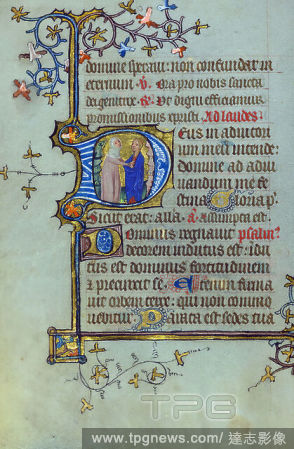 domine speravi: non confundar in
eternum. V. Ora pro nobis sancta
dei genitrix. R. Ut digni efficiamur
promissionibus xpisti. Ad laudes.
Deus in adiutori
um meum intende:
domine ad adiu
uandum me fe
stina. Gloria p
Sicut erat: alla A. Assumpta est.
Dominus regnauit psalm
decorem indutus est: idu
tus est dominus fortitudinem
et precinxit se. Etenim firma
uit orbem terre: qui non commo
uebitur. Parata est sedes tua
TPG
www.tpgnews.com / 達志影像